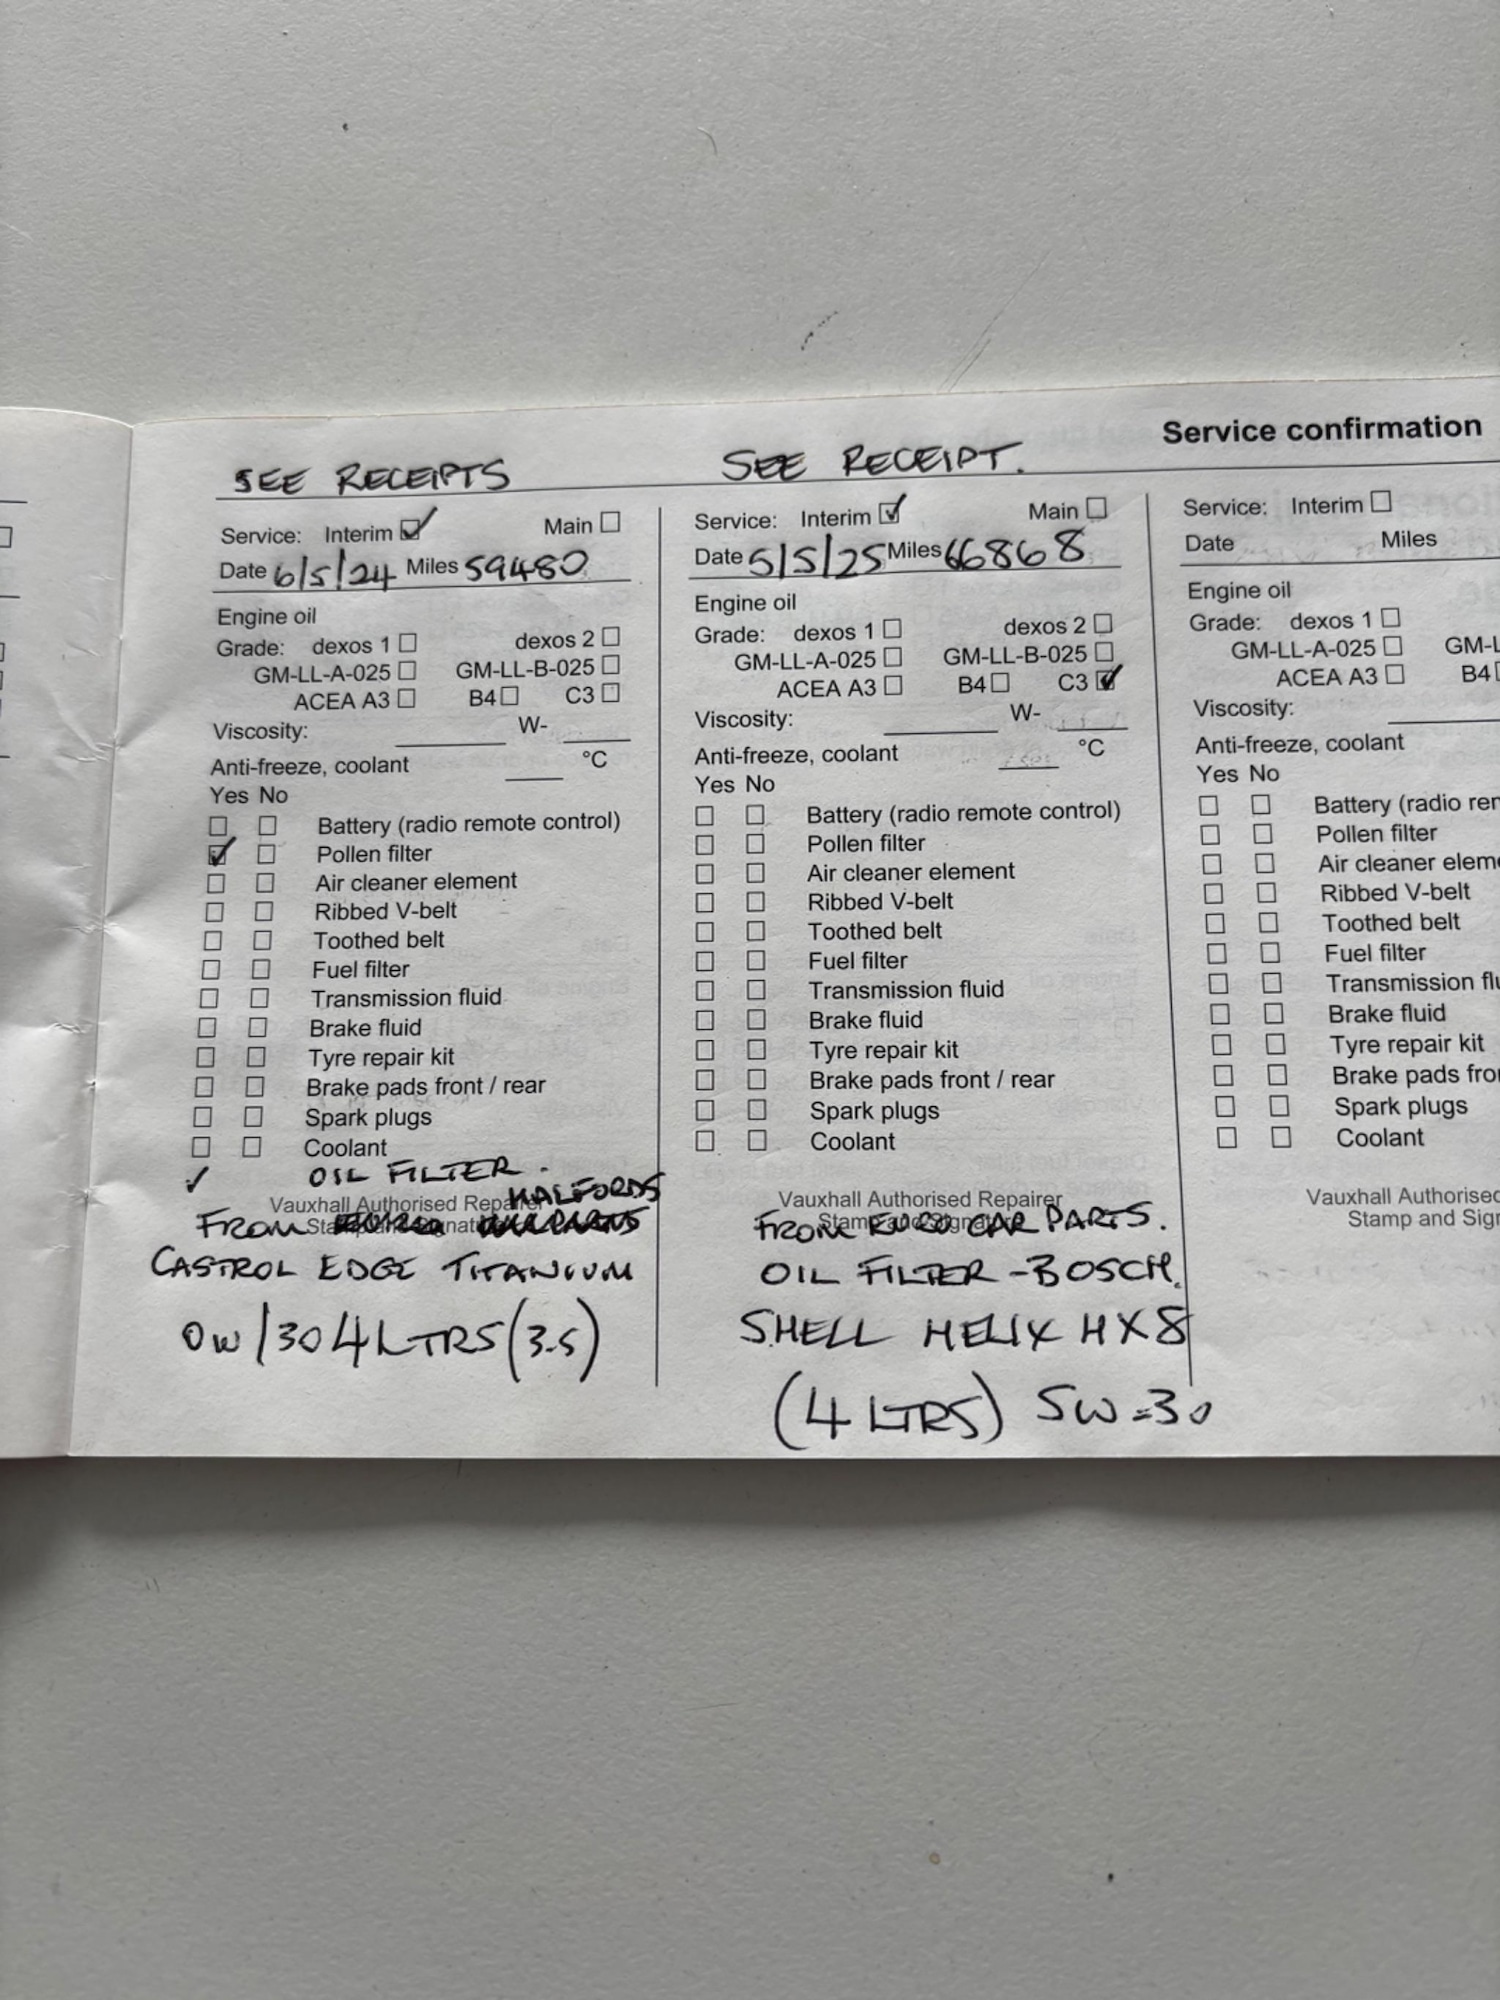 Service confirmation
SEE RECEIPTS
Service: Interim Main
Date 6/5/24 Miles 59480
Engine oil
Grade: dexos 1 dexos 2
GM-LL-A-025 GM-LL-B-025
ACEA A3 B4 C3
Viscosity: W-
Anti-freeze, coolant °C
Yes No
Battery (radio remote control)
Pollen filter
Air cleaner element
Ribbed V-belt
Toothed belt
Fuel filter
Transmission fluid
Brake fluid
Tyre repair kit
Brake pads front / rear
Spark plugs
Coolant
OIL FILTER -
Vauxhall Authorised Repairer
HALFORDS
Stamp and Signature
FROM
CASTROL EDGE TITANIUM
0W/30 4 LTRS (3.5)
SEE RECEIPT.
Service: Interim Main
Date 5/5/25 Miles 66868
Engine oil
Grade: dexos 1 dexos 2
GM-LL-A-025 GM-LL-B-025
ACEA A3 B4 C3
Viscosity: W-
Anti-freeze, coolant °C
Yes No
Battery (radio remote control)
Pollen filter
Air cleaner element
Ribbed V-belt
Toothed belt
Fuel filter
Transmission fluid
Brake fluid
Tyre repair kit
Brake pads front / rear
Spark plugs
Coolant
Vauxhall Authorised Repairer
Stamp and Signature
FROM EURO CAR PARTS.
OIL FILTER - BOSCH.
SHELL HELIX HX8
(4 LTRS) 5W-30
Service: Interim
Date Miles
Engine oil
Grade: dexos 1
GM-LL-A-025 GM-L
ACEA A3 B4
Viscosity:
Anti-freeze, coolant
Yes No
Battery (radio rem
Pollen filter
Air cleaner eleme
Ribbed V-belt
Toothed belt
Fuel filter
Transmission flu
Brake fluid
Tyre repair kit
Brake pads fro
Spark plugs
Coolant
Vauxhall Authorised
Stamp and Sig